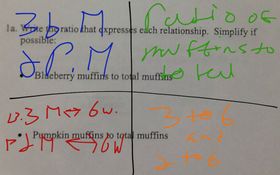 3 b.M
2 P.M
ratio of
muffins to
total
1a. Write the ratio that expresses each relationship. Simplify if
possible:
• Blueberry muffins to total muffins
3 M ↔ 6w.
2 M ↔ 6w
• Pumpkin muffins to total muffins
3 to 6
and
2 to 6